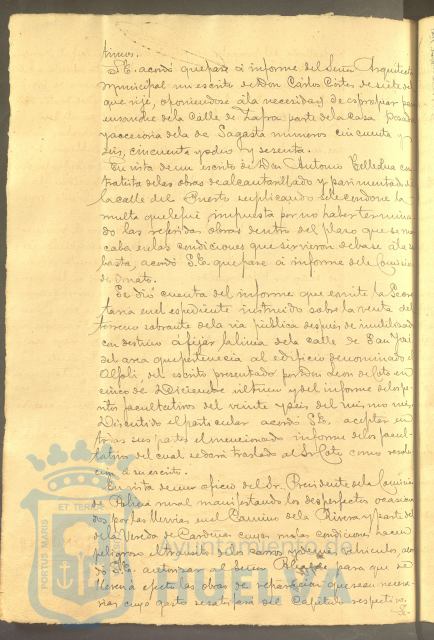 tinuos.
S.E. acordó que pase á informe del Señor Arquitecto
Municipal un escrito de Don Carlos Cortés de siete del
que rije, oponiendose á la necesidad de expropiar para
ensanche de la Calle de Zafra parte de la casa Posada
y accesoria de la de Sagasta números cincuenta y
seis, cincuenta y ocho y sesenta.
En vista de un escrito de Don Antonio con
tratista de las obras de alcantarillado y pavimentado de
la calle del Puerto suplicando se le condone la
multa que le fué impuesta por no haber termina
do las referidas obras dentro del plazo que se mar
caba en las condiciones que sirvieron de base á la su
basta, acordó S.E. que pase á informe de la Comisión
de Ornato.
Se dió cuenta del informe que emite la Secre
taría en el espediente instruido sobre la venta del
terreno sobrante de la via pública después de inutilizado
con destino á fijar la linea de la calle de San José
del area que pertenecia al edificio denominado el
Alfolí, del escrito presentado por Don Leon de Coto en
cinco de Diciembre ultimo y del informe de los pe
ritos facultativos del veinte y seis del mismo mes
Discutido el particular acordó S.E. aceptar en
todas sus partes el mencionado informe de los facul
tativos del cual se dará traslado al Sr. Coto como resolu
cion á su escrito.
En vista de un oficio del Sr. Presidente de la Comisión
de Policia rural manifestando los desperfectos ocasiona
dos por las lluvias en el Camino de la Rivera y parte del
de la Vereda de Cardeñas cuyas malas condiciones hacen
peligroso el transito de carros y demás vehiculos, acor
dó S.E. autorizar al Señor Alcalde para que se
lleven á efecto las obras de reparacion que sean necesa
rias cuyo gasto se satisfará del Capítulo respectivo.
Ayuntamiento de
HUELVA
PORTUS MARIS
ET TERRAE